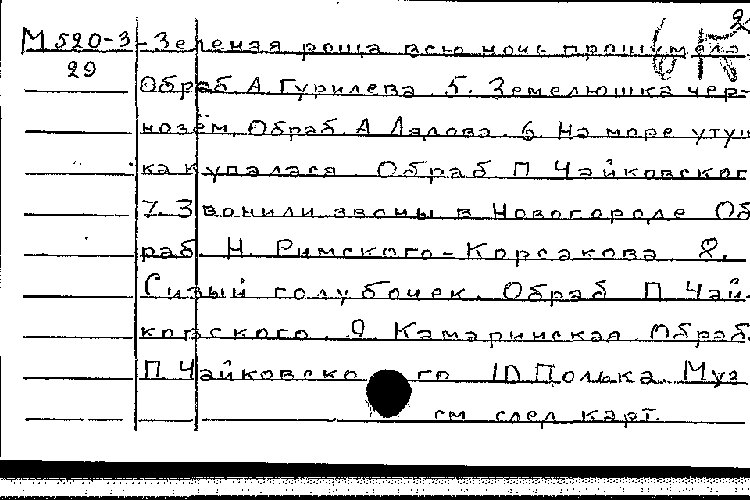 2
М 520-3 Зеленая роща всю ночь прошумела.
29
Обраб. А. Гурилева. 5. Земелюшка чер-
нозём. Обраб. А. Лядова. 6. На море утуш
ка купалася. Обраб. П. Чайковског
7. Звонили звоны в Новогороде. Об
раб. Н. Римского-Корсакова. 8.
Сизый голубочек. Обраб. П. Чай-
ковского. 9. Камаринская. Обраб.
П. Чайковского. 10. Полька. Муз.
см. след. карт.